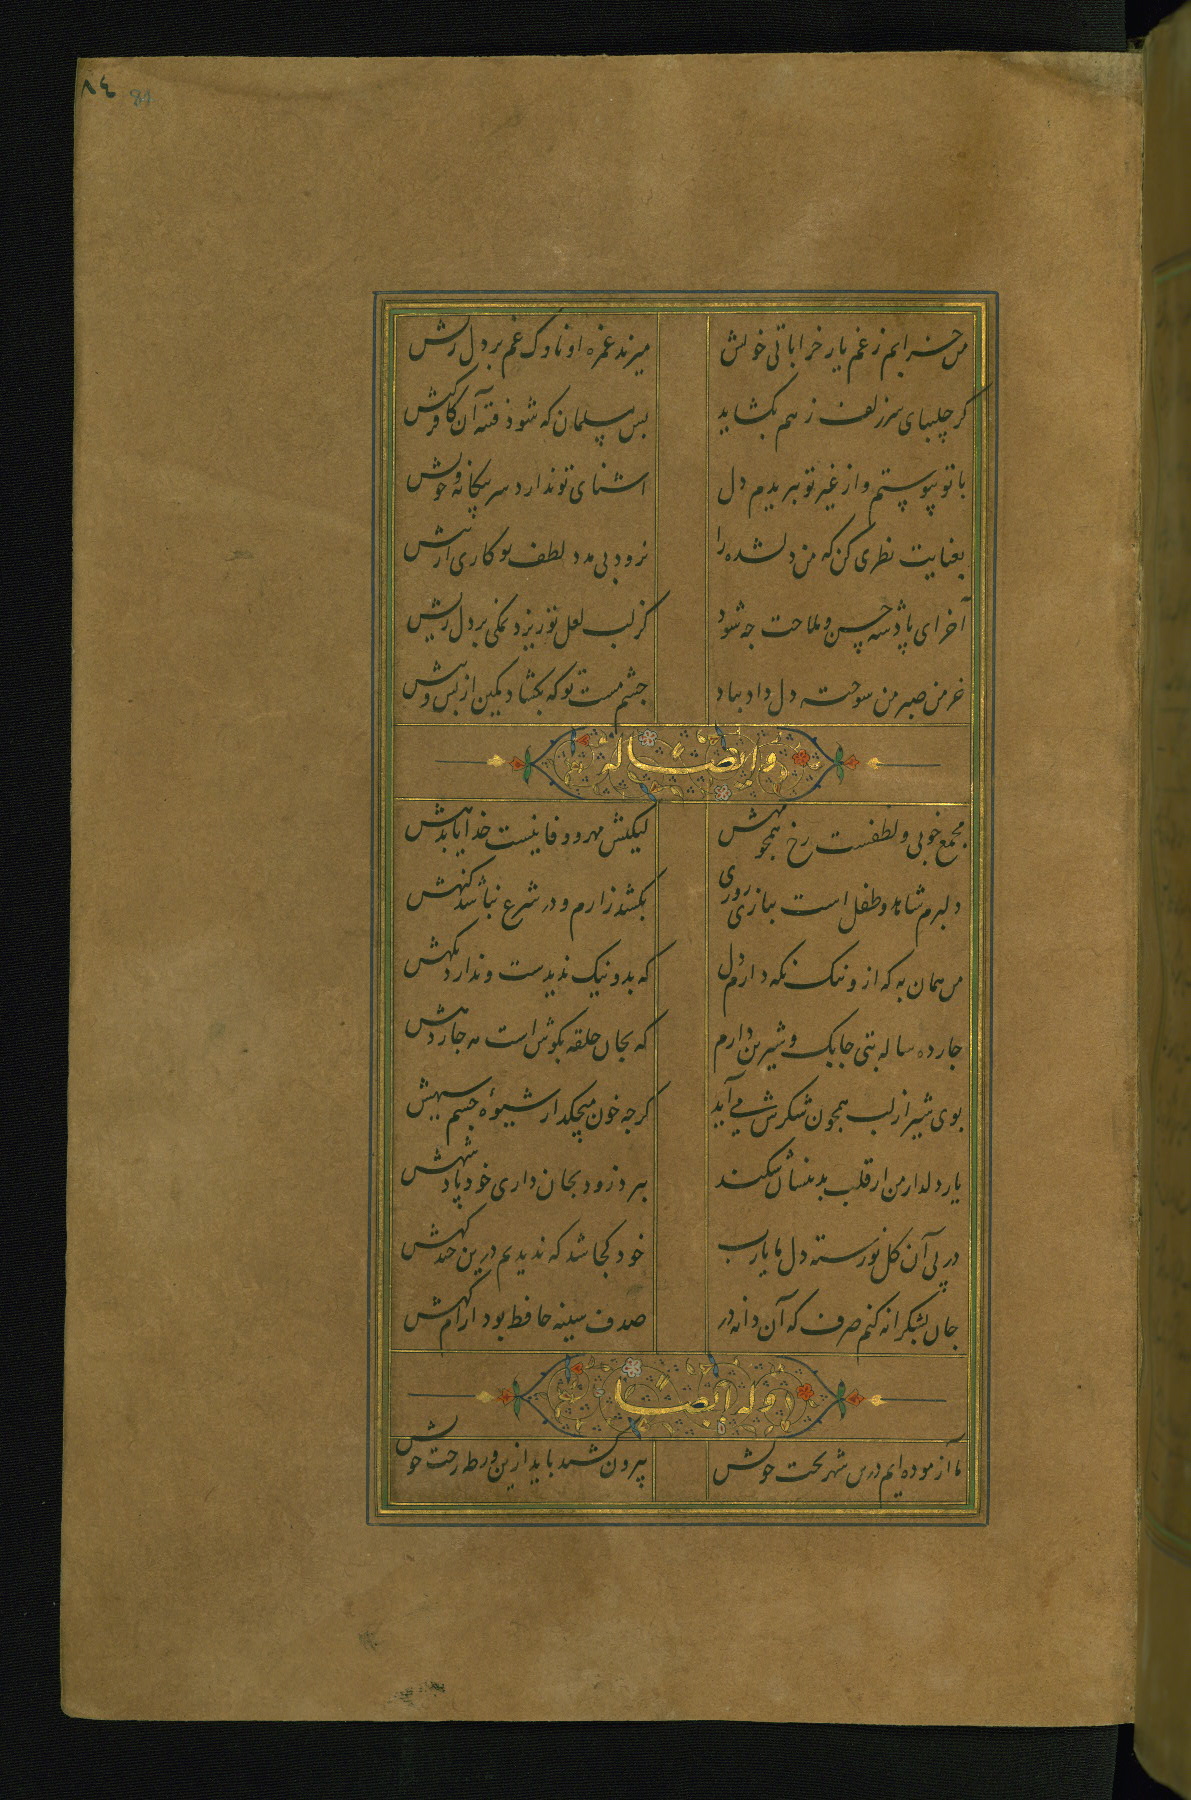 ٨٤ 84
من خرابم ز غم یار خراباتی خویش میزند غمزه او ناوک غم بر دل ریش
کر چلیپای سر زلف ز هم بکشاید بس مسلمان که شود فتنه آن کافرکیش
با تو پیوستم و از غیر تو ببریدم دل اشنای تو ندارد سر بیکانه و خویش
بعنایت نظری کن که من دلشده را نرود بی مدد لطف تو کاری از پیش
آخر ای پادشه حسن و ملاحت چه شود کز لب لعل تو ریزد نمکی بر دل ریش
خرمن صبر من سوخته دل داد بباد چشم مست تو که بکشاد کمین از پس و پیش
و ایضا له
مجمع خوبی و لطفست رخ همچو مهش لیکنش مهر و وفا نیست خدایا بدهش
دلبرم شاهد و طفل است ببازی روزی بکشد زارم و در شرع نباشد کنهش
من همان به که ازو نیک نکه دارم دل که بد و نیک ندیدست و ندارد نکهش
چارده ساله بتی چابک و شیرین دارم که بجان حلقه بکوش است مه چاردهش
بوی شیر از لب همچون شکرش می آید کرچه خون میچکد از شیوهٔ چشم سیهش
یار دلدار من ار قلب بدینسان شکند ببرد زود بجان داری خود پادشهش
در پی آن کل نورسته دل ما یارب خود کجا شد که ندیدیم درین چند کهش
جان بشکرانه کنم صرف که آن دانه در صدف سینه حافظ بود آرامکهش
و له ایضا
ما آزموده ایم درین شهر بخت خویش بیرون کشید باید ازین ورطه رخت خویش